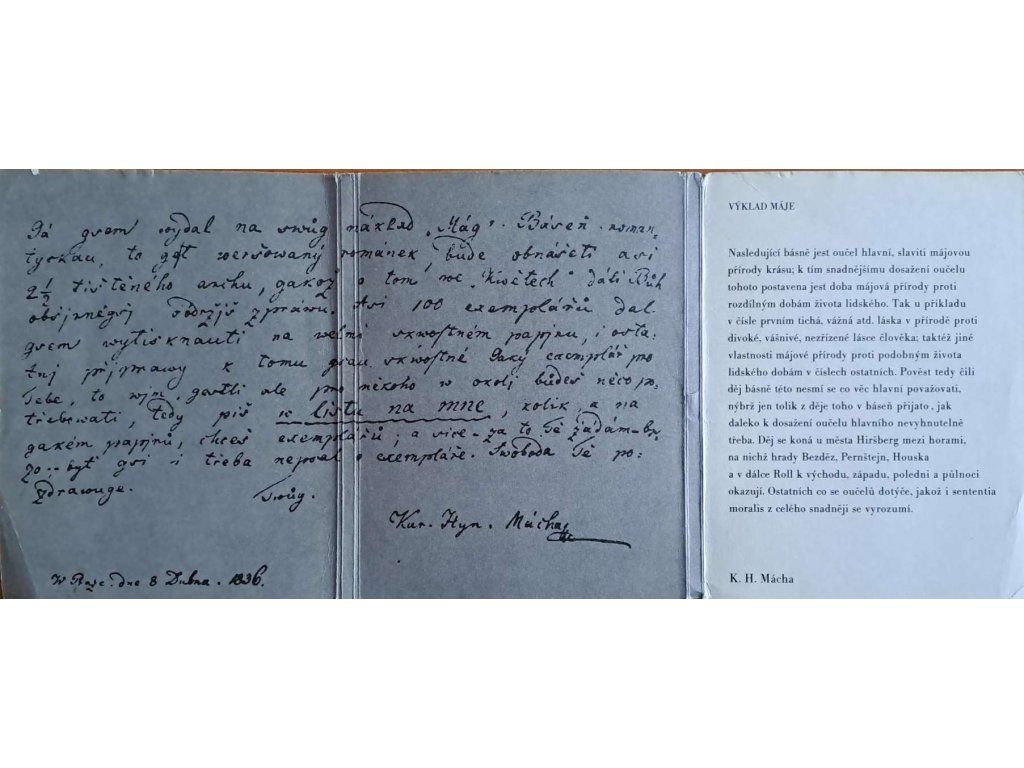 Já gsem wydal na swůg náklad „Mág". Báseň roman-
tyckau, to gest weršowaný románek, bude obnášeti asi
2 1/2 tištěného archu, gakož o tom we „Kwětech" dáli Bůh
obšjrněgšj obdržjš zpráwu. Asi 100 exemplářů dal
gsem wytisknauti na welmi skwostném papjru, i osta-
tnj přjprawy k tomu gsau skwostné. Gaký exemplář pro
Tebe, to wjm, gestli ale pro někoho w okolj budeš něco po-
třebowati, tedy piš w listu na mne, kolik, a na
gakém papjru, chceš exemplářů; a wice – za to Tě žádám – br-
zo – byť gsi i třeba neposlal o exempláře. Swoboda Tě po-
zdrawuge. Twůg.
Kar. Hyn. Mácha
W Praze. dne 8 Dubna. 1836.
VÝKLAD MÁJE
Nasledující básně jest oučel hlavní, slaviti májovou
přírody krásu; k tím snadnějšímu dosažení oučelu
tohoto postavena jest doba májová přírody proti
rozdílným dobám života lidského. Tak u příkladu
v čísle prvním tichá, vážná atd. láska v přírodě proti
divoké, vášnivé, nezřízené lásce člověka; taktéž jiné
vlastnosti májové přírody proti podobným života
lidského dobám v číslech ostatních. Pověst tedy čili
děj básně této nesmí se co věc hlavní považovati,
nýbrž jen tolik z děje toho v báseň přijato, jak
daleko k dosažení oučelu hlavního nevyhnutelně
třeba. Děj se koná u města Hiršberg mezi horami,
na nichž hrady Bezděz, Pernštejn, Houska
a v dálce Roll k východu, západu, poledni a půlnoci
okazují. Ostatních co se oučelů dotýče, jakož i sententia
moralis z celého snadněji se vyrozumí.
K. H. Mácha